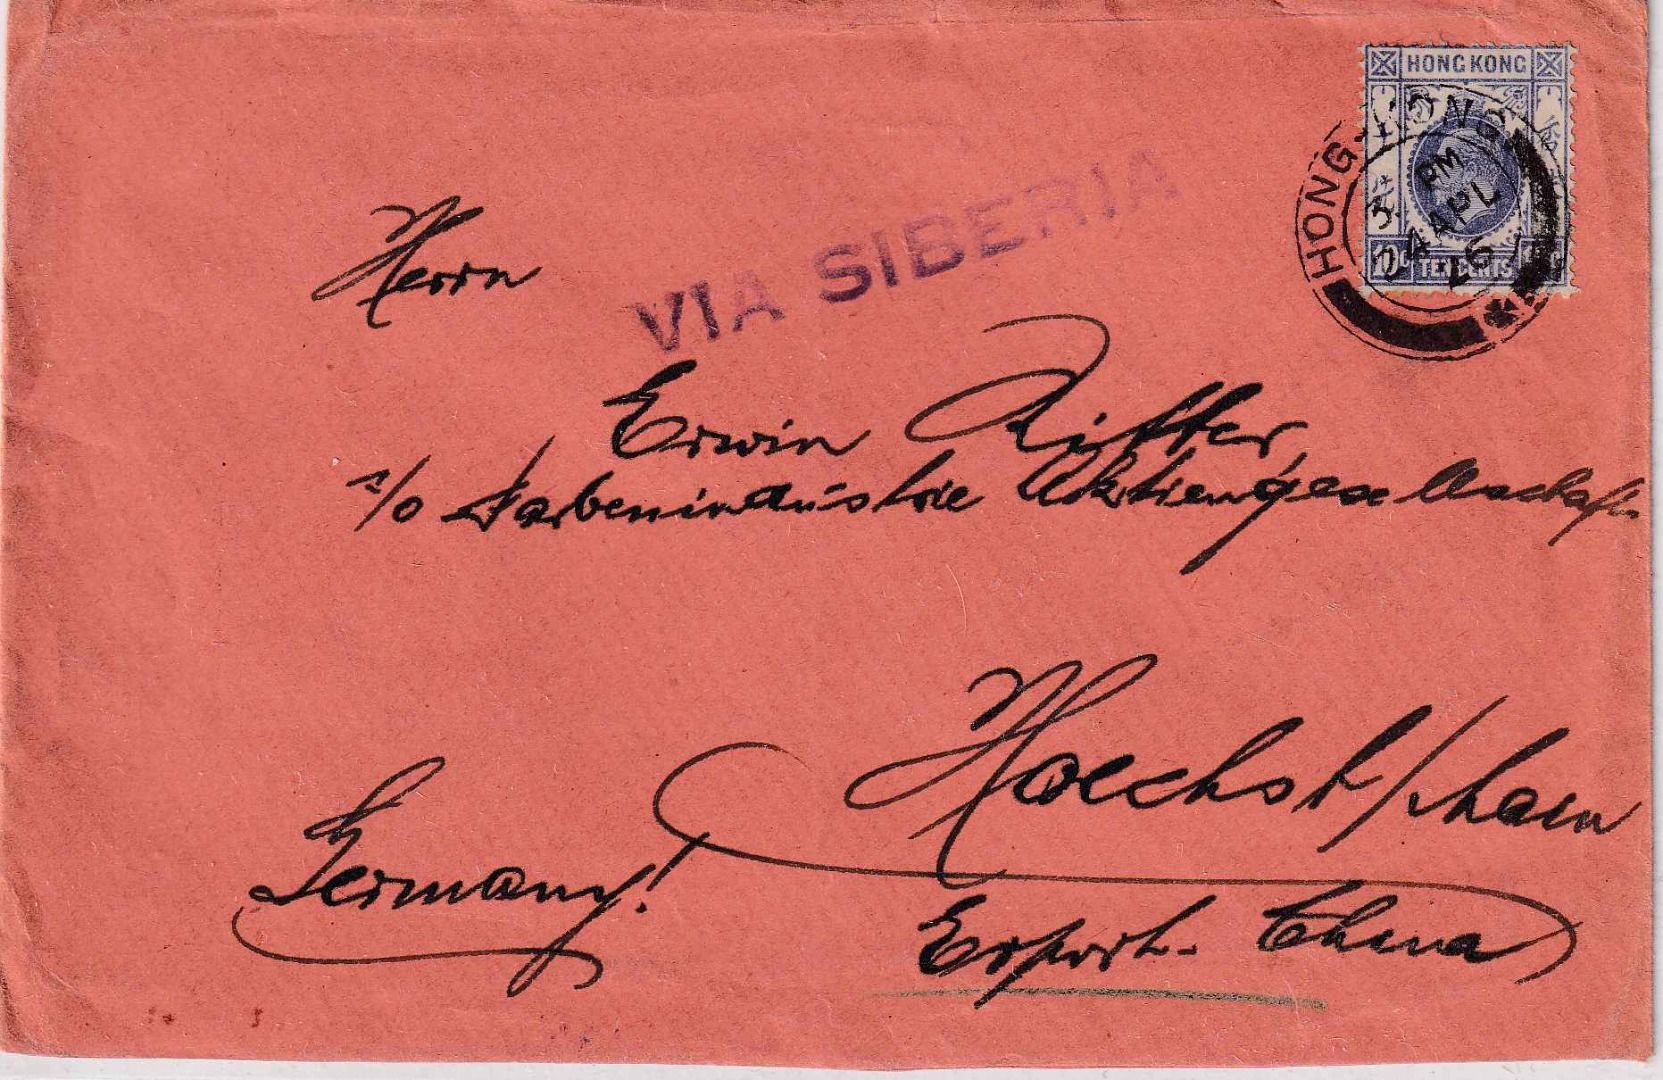 HONG KONG
HONG-KONG
3. PM
24 APL
26
10c TEN CENTS
VIA SIBERIA
Herrn
Erwin Ritter,
c/o Farbenindustrie Aktiengesellschaft
Hoechst/Main
Germany!
Export-China